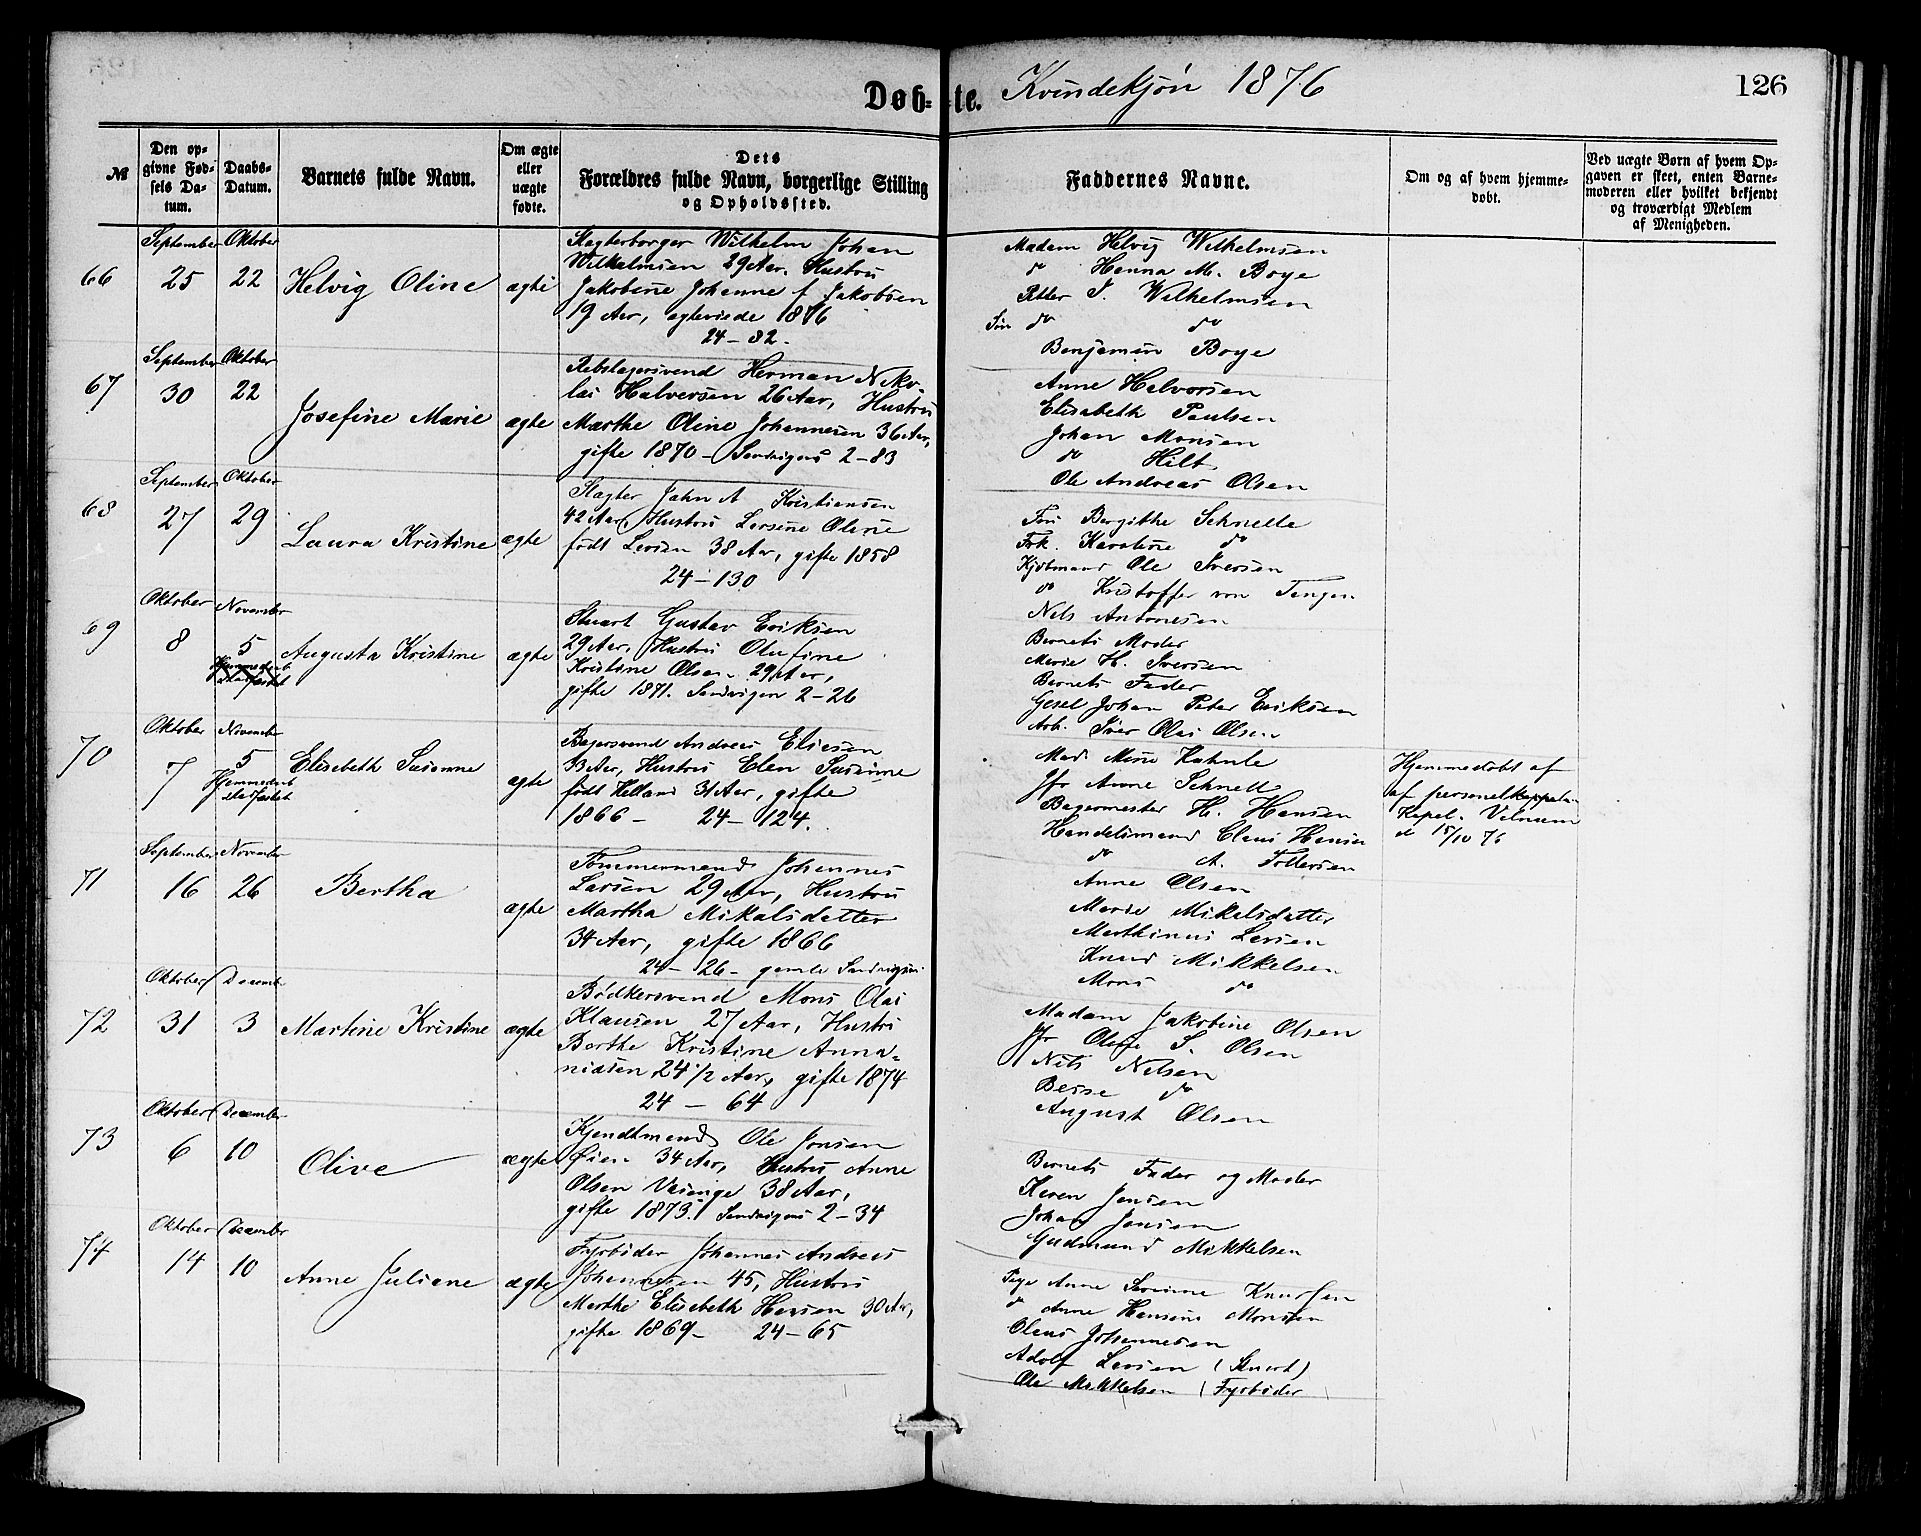 Døb-te. Kvindekjøn 1876
126
№
Den opgivne Fødsels Datum.
Daabs-Datum.
Barnets fulde Navn.
Om ægte eller uægte fødte.
Dets
Forældres fulde Navn, borgerlige Stilling
og Opholdssted.
Faddernes Navne.
Om og af hvem hjemmedøbt.
Ved uægte Børn af hvem Opgaven er skeet, enten Barnemoderen eller hvilket bekjendt og troværdigt Medlem af Menigheden.
66
September
25
Oktober
22
Helvig Oline
ægte
Slagterborger Wilhelm Johan
Wilhelmsen 29 Aar. Hustru
Jakobine Johanne f. Jakobsen
19 Aar, ægteviede 1876
24-82.
Madam Helvig Wilhelmsen
do Hanna M. Boye
Petter J. Wilhelmsen
do do
Benjamin Boye
67
September
30
Oktober
22
Josefine Marie
ægte
Rebslagersvend Herman Niko-
lai Halversen 26 Aar, Hustru
Marthe Oline Johannesen 36 Aar,
gifte 1870 - Sandvigens 2-83
Anne Halvorsen
Elisabeth Paulsen
Johan Monsen
do Hilt
Ole Andreas Olsen
68
September
27
Oktober
29
Laura Kristine
ægte
Slagter Jahn A Kristiansen
42 Aar, Hustru Larsine Oline
født Larsen 38 Aar, gifte 1858
24-130
Bergithe Schnelle
Frk. Karoline do
Kjøbmand Ole Iversen
do Kristoffer von Tangen
Nils Antonesen
69
Oktober
8
November
5
Augusta Kristine
ægte
Stuart Gustav Eriksen
29 Aar, Hustru Olufine
Kristine Olsen 29 Aar,
gifte 1871. Sandvigen 2-26
Barnets Moder
Marie H. Iversen
Barnets Fader
Gesel Johan Peter Eriksen
Arb. Iver Olai Olsen
70
Oktober
7
November
5
Hjemmedøbt
stadfæstet
Elisabeth Susanne
ægte
Bagersvend Andreas Eliesen
33 Aar, Hustru Elen Susanne
født Helland 31 Aar, gifte
1866 - 24-124.
Mad. Mine Kahnle
Jfr Anne Schnell
Bagermester H. Hansen
Handelsmand Claus Hansen
do A. Tollersen
Hjemmedøbt af
af personelkapelan
Kapel. Vilnum
d 15/10 76
71
September
16
November
26
Bertha
ægte
Tømmermand Johannes
Larsen 29 Aar, Hustru
Martha Mikalsdatter
34 Aar, gifte 1866
24-26- gamle Sandvigen
Anne Olsen
Marie Mikalsdatter
Marthinus Larsen
Knud Mikkelsen
Mons do
72
Oktober
31
Decembe
3
Martine Kristine
ægte
Bødkersvend Mons Olai
Klausen 27 Aar, Hustru
Berthe Kristine Anna-
niasen 24 1/2 Aar, gifte 1874
24-64
Madam Jakobine Olsen
Jfr S. Olsen
Nils Nilsen
do
August Olsen
73
Oktober
6
December
10
Olive
ægte
Kjendtmand Ole Jonsen
Øien 34 Aar, Hustru Anne
Olsen 38 Aar,
gifte 1873. Sandvigens 2-34
Barnets Fader og Moder
Karen Jensen
Johan Jensen
Gudmund Mikkelsen
74
Oktober
14
December
10
Anne Juliane
ægte
Fyrbøder Johannes Andreas
Johannesen 45, Hustru
Marthe Elisabeth Hansen 30 Aar,
gifte 1869- 24-65
Pige Anne Severine Knudsen
do Anne Hansine Monsen
Olaus Johannesen
Adolf Larsen (Stuart)
Ole Mikkelsen (Fyrbøder)